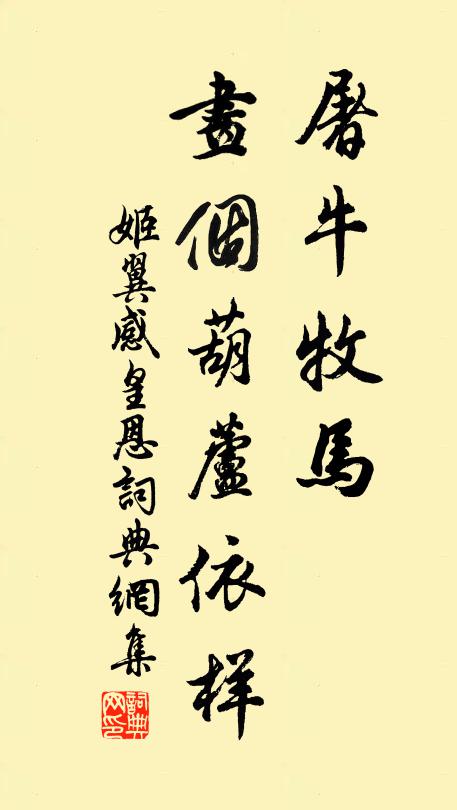 屠牛牧馬
畫個葫蘆依樣
姬翼感皇恩詞典網集
詞典网印